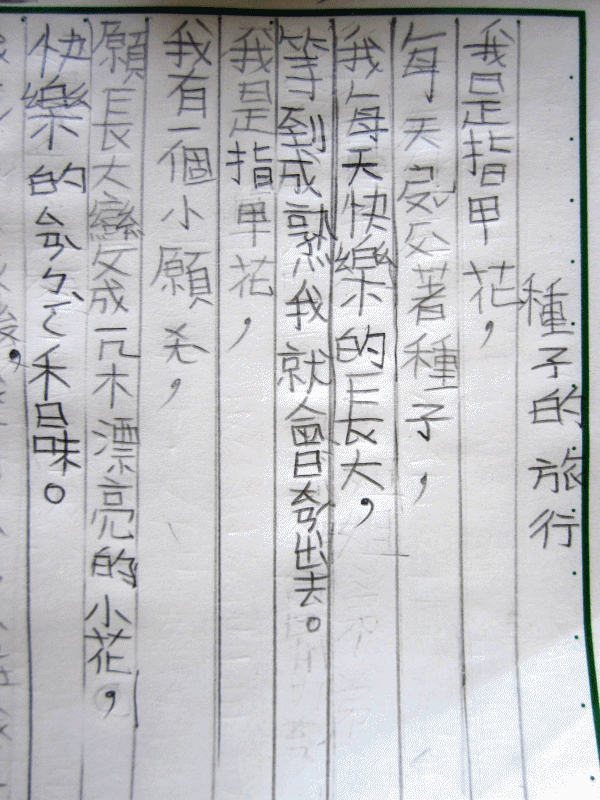 種子的旅行
我是指甲花，
每天著種子，
我每天快樂的長大，
等到成熟我就會出去。
我是指甲花，
我有一個小願，
願長大變成一朵漂亮的小花，
快樂的味。
後，